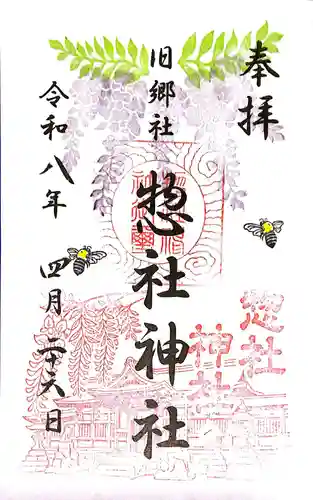 奉拝
旧郷社
惣社神社
令和八年
四月二十六日
惣社
神社